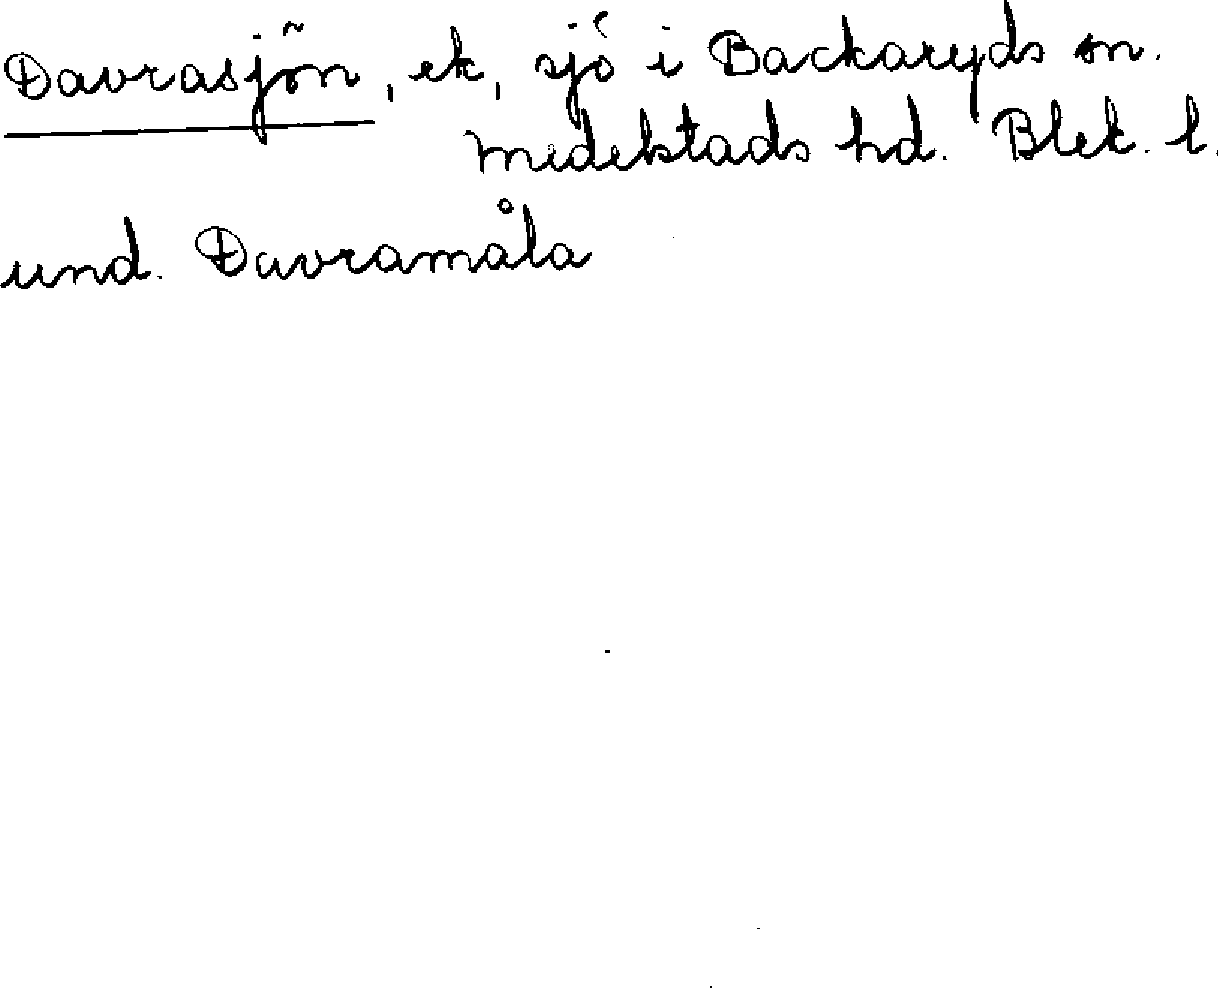 Davrasjön, ek, sjö i Backaryds sn.
Medelstads hd. Blek. l.
und. Davramåla